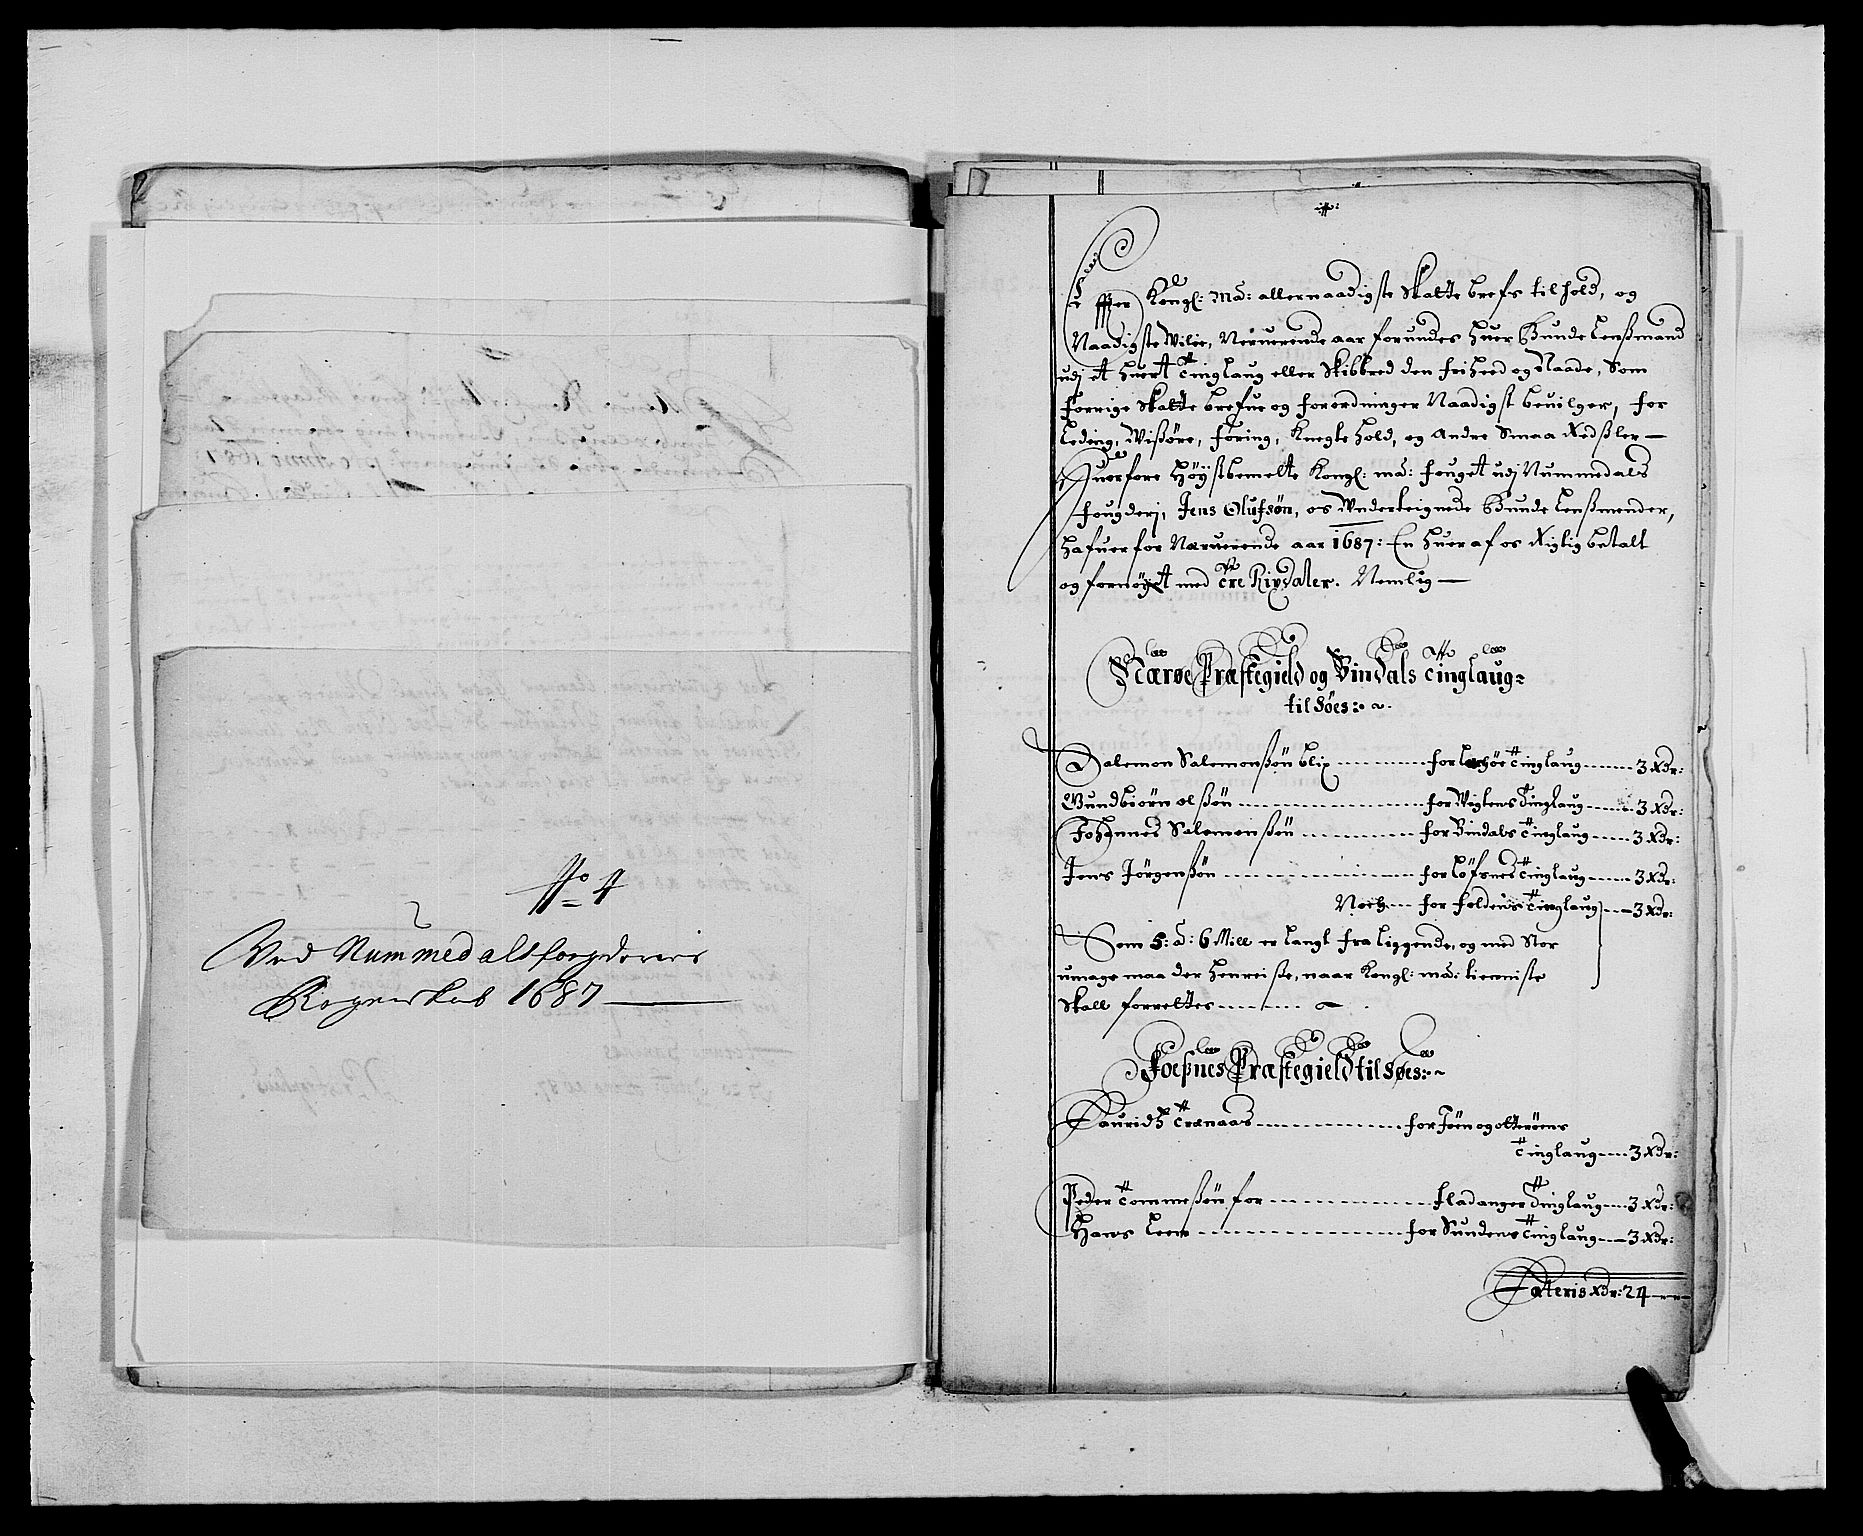 No 4
Ved Nummedals fougderies
Regenskab 1687
Effter Kongl: May: allernaadigste Skatte brefs tilhold, og
Naadigste Vilie, Nerverende aar forundes huer Bunde Lenßmand
udj et huert Tinglaug eller Skibbred den friheed og Naade, Som
forrige Skatte brefue og forordninger Naadigst beuilger, for
Leding, Wißøre, føring, Knegtehold, og andre Smaa Redßler
Huorfore Høystbemelte Kongl: May: fouget udj Nummedals
fougderj, Jens Olufsøn, os Underteignede Bunde Lenßmender,
hafuer for Nerverende aar 1687: En huer af os Rigtig betalt
og fornøyet med Tre Rixdaler. Nemlig
Nærøe Præstegield og Bindals Tinglaug
til Søes:
Salemon Salemonßøn blix for Lechöe Tinglaug 3 Rdr:
Gundbiørn olßøn for Vigtens Tinglaug 3 Rdr:
Johannes Salemonßøn for Bindals Tinglaug 3 Rdr:
Jens Jörgenßøn for Löfsnes Tinglaug 3 Rdr:
Noch for foldens Tinglaug 3 Rdr:
Som 5: a: 6 Mill er langt fra liggende, og med Stor
umage maa der henreiße, naar Kongl: may: tienniste
Skall forrettes
Foeßnes Præstegield til Søes:
Lauridtz Trænaas for Jöen og otterøens
Tinglaug 3 Rdr:
Peder Tommeßøn for Fladanger Tinglaug 3 Rdr:
Hans Leem for Sundens Tinglaug 3 Rdr:
Lateris Rdr: 24